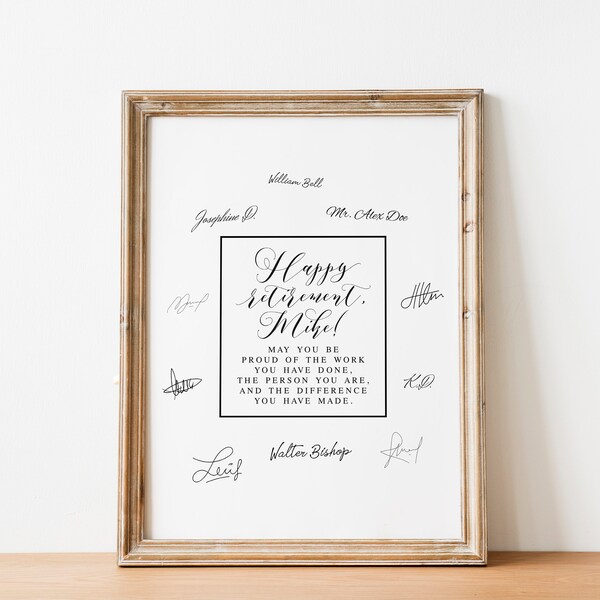 William Bell
Josephine D.
Mr. Alex Doe
Happy
retirement,
Mike!
MAY YOU BE
PROUD OF THE WORK
YOU HAVE DONE,
THE PERSON YOU ARE,
AND THE DIFFERENCE
YOU HAVE MADE.
K.D.
Walter Bishop